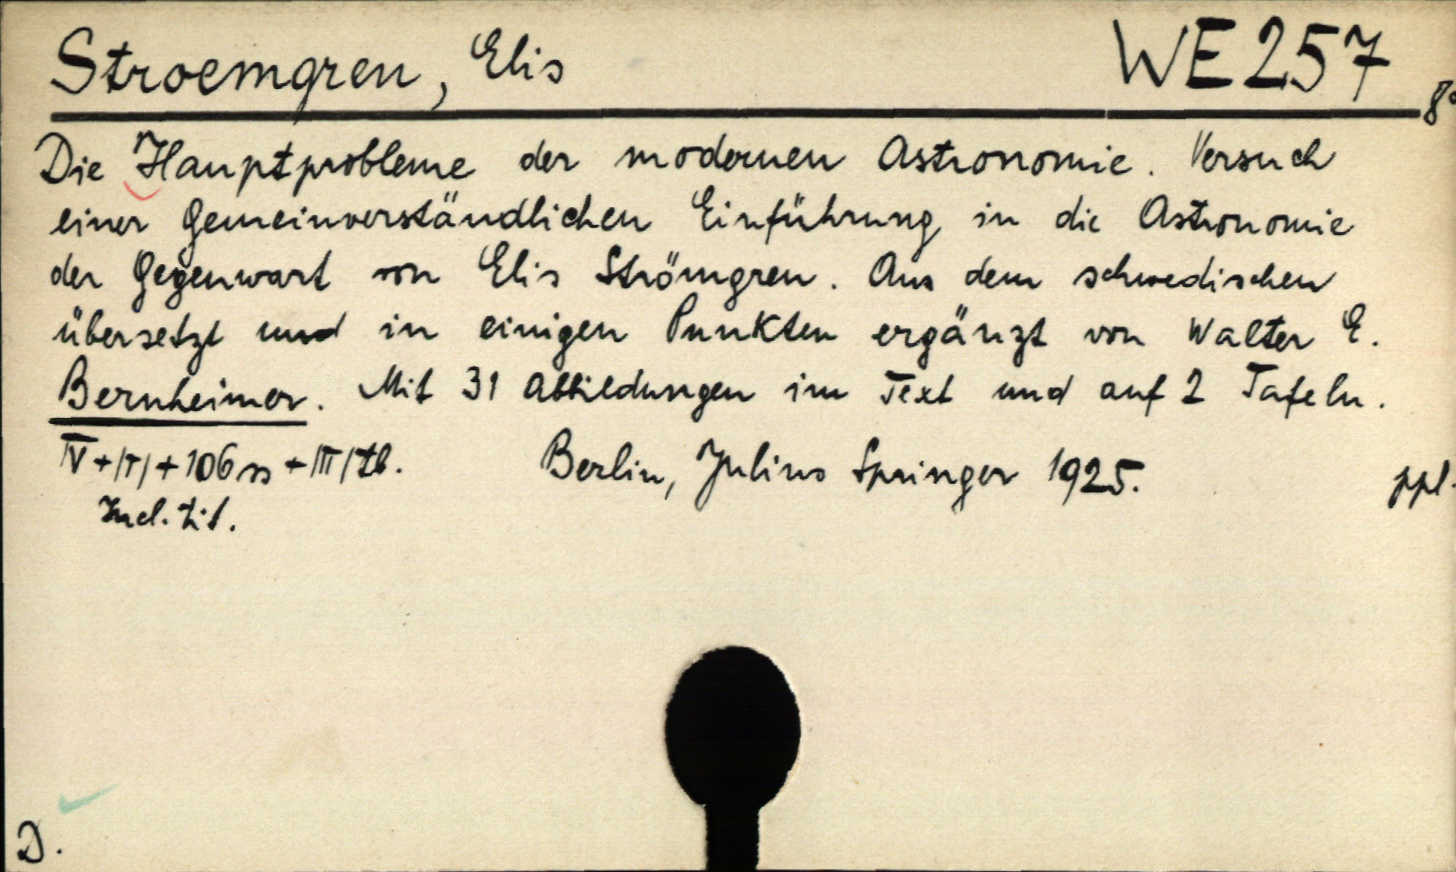 Stroemgren, Elis WE257 8°
Die Hauptprobleme der modernen Astronomie. Versuch
einer Gemeinverständlichen Einführung in die Astronomie
der Gegenwart von Elis Strömgren. Aus dem schwedischen
übersetzt und in einigen Punkten ergänzt von Walter E.
Bernheimer. Mit 31 Abbildungen im Text und auf 2 Tafeln.
IV+/I/+106 ss +/II/tb. Berlin, Julius Springer 1925. ppl.
Incl. tit.
D.